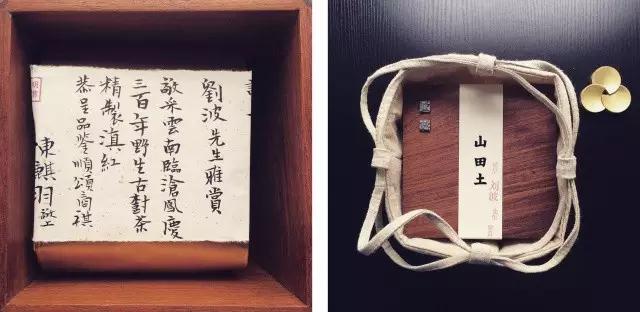 劉波先生雅賞
敬采雲南臨滄鳳慶
三百年野生古樹茶
精製滇紅
恭呈品鑒順頌商祺
陳麒羽敬上
山田土
刘波